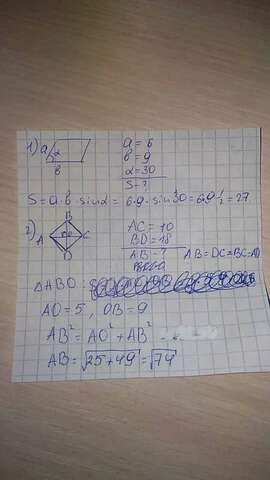 1) a α b
a = 6
b = 9
α = 30
S - ?
S = a · b · sin α = 6 · 9 · sin 30 = 6·9 · 1/2 = 27
2) A B C D
AC = 10
BD = 18
AB - ?
AB = DC = BC = AD
△ABO :
AO = 5 , OB = 9
AB² = AO² + AB²
AB = √25+49 = √74